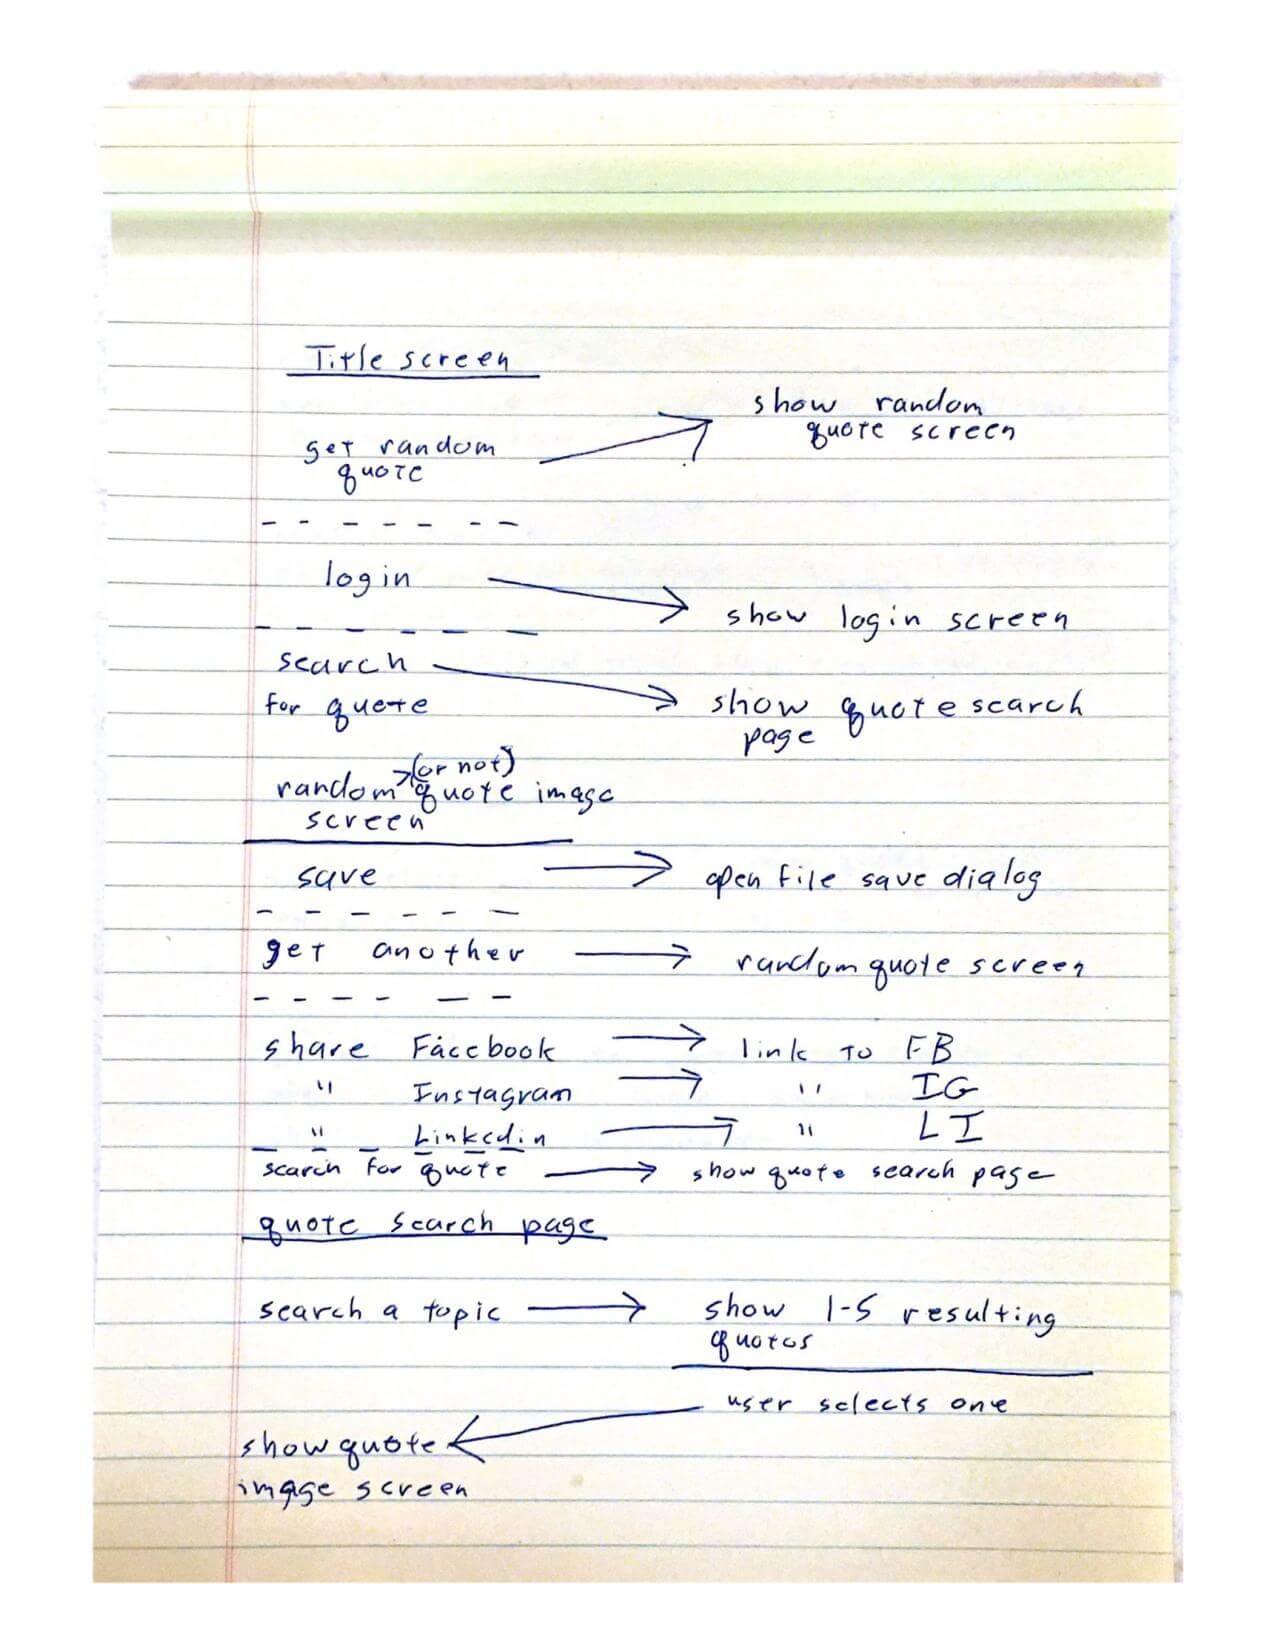 Title screen
show random
quote screen
get random
quote
login
show login screen
search
for quote
show quote search
page
(or not)
random quote image
screen
save
open file save dialog
get another
random quote screen
share Facebook link to FB
" Instagram " IG
" Linkedin " LI
search for quote show quote search page
quote search page
search a topic show 1-5 resulting
quotes
user selects one
show quote
image screen